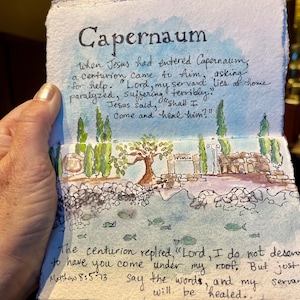 Capernaum
When Jesus had entered Capernaum,
a centurion came to him, asking
for help. "Lord, my servant lies at home
paralyzed, suffering terribly."
Jesus said, "Shall I
come and heal him?"
The centurion replied, "Lord, I do not deserve
to have you come under my roof. But just
Matthew 8:5-13 say the words, and my servant
will be healed.